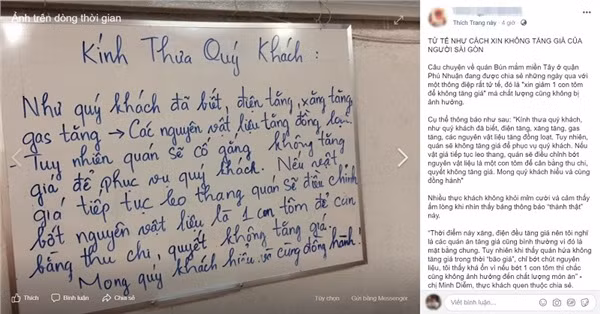 Ảnh trên dòng thời gian
Kính Thưa Quý Khách :
Như quý khách đã biết, điện tăng, xăng tăng,
gas tăng → Các nguyên vật liệu tăng đồng loạt
- Tuy nhiên quán sẽ cố gắng không tăng
giá để phục vụ quý khách. Nếu vật
giá tiếp tục leo thang quán sẽ điều chỉnh
bớt nguyên vật liệu là 1 con tôm để cân
bằng thu chi, quyết không tăng giá.
Mong quý khách hiểu và cùng đồng hành!
Thích
Bình luận
Chia sẻ
Tùy chọn
Gửi bằng Messenger
Thích Trang này · 4 giờ ·
TỬ TẾ NHƯ CÁCH XIN KHÔNG TĂNG GIÁ CỦA
NGƯỜI SÀI GÒN
Câu chuyện về quán Bún mắm miền Tây ở quận
Phú Nhuận đang được chia sẻ những ngày qua với
một thông điệp rất tử tế, đó là "xin giảm 1 con tôm
để không tăng giá" mà chất lượng cũng không bị
ảnh hưởng.
Cụ thể thông báo như sau: "Kính thưa quý khách,
như quý khách đã biết, điện tăng, xăng tăng, gas
tăng, các nguyên vật liệu tăng đồng loạt. Tuy nhiên,
quán sẽ không tăng giá để phục vụ quý khách. Nếu
vật giá tiếp tục leo thang, quán sẽ điều chỉnh bớt
nguyên vật liệu là một con tôm để cân bằng thu chi,
quyết không tăng giá. Mong quý khách hiểu và cùng
đồng hành"
Nhiều thực khách không khỏi mỉm cười và cảm thấy
ấm lòng khi nhìn thấy bảng thông báo "thành thật"
này.
"Thời điểm này xăng, điện đều tăng giá nên tôi nghĩ
là các quán ăn tăng giá cũng bình thường vì đó là
mặt bằng chung. Tuy nhiên khi thấy quán hứa không
tăng giá trong thời "bão giá", chỉ bớt chút nguyên
liệu, tôi thấy khá ổn vì nếu bớt 1 con tôm thì chắc
cũng không ảnh hưởng đến chất lượng món ăn" -
chị Minh Diễm, thực khách quen thuộc chia sẻ.
Viết bình luận...